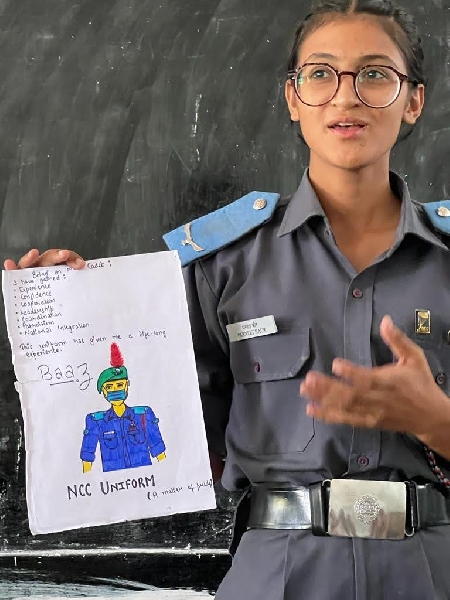 Being an NCC Cadet:
I have gained:
• Experience
• Confidence
• Cooperation
• Leadership
• Coordination
• Patriotism
• National Integration
This uniform has given me a life-long
experience.
Baaz
NCC UNIFORM
(A matter of pride)